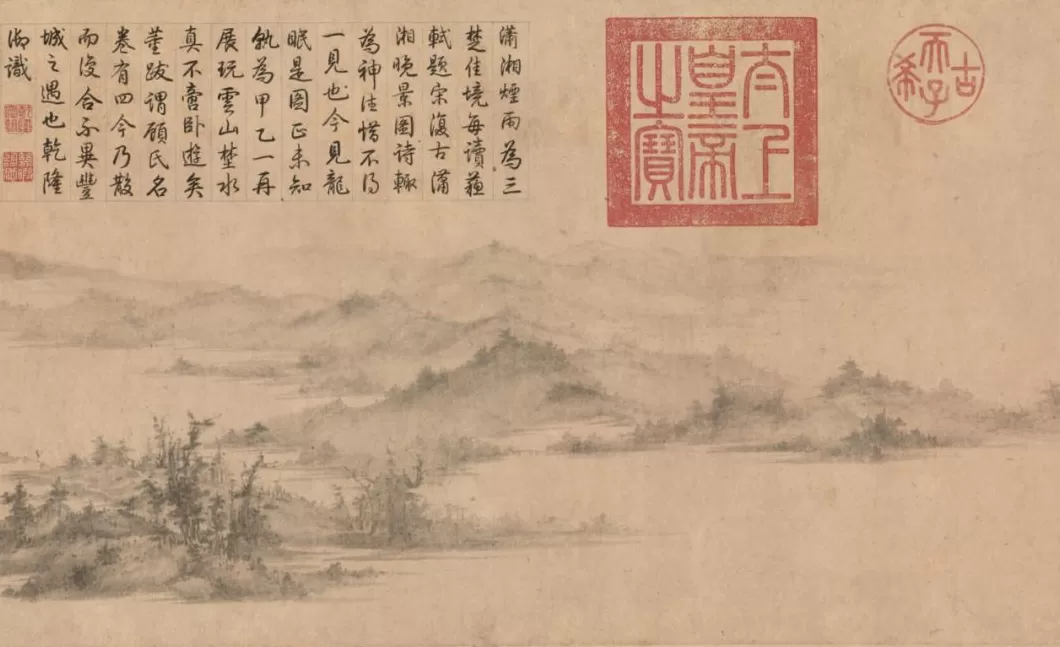 古希天子
太上
皇帝
之寶
瀟湘煙雨為三
楚佳境每讀蘇
軾題宋復古瀟
湘晚景圖詩輙
為神往惜不得
一見也今見龍
眠是圖正未知
孰為甲乙一再
展玩雲山埜水
真不啻臥遊矣
董跋謂顧氏名
卷有四今乃散
而復合不異豐
城之遇也乾隆
御識